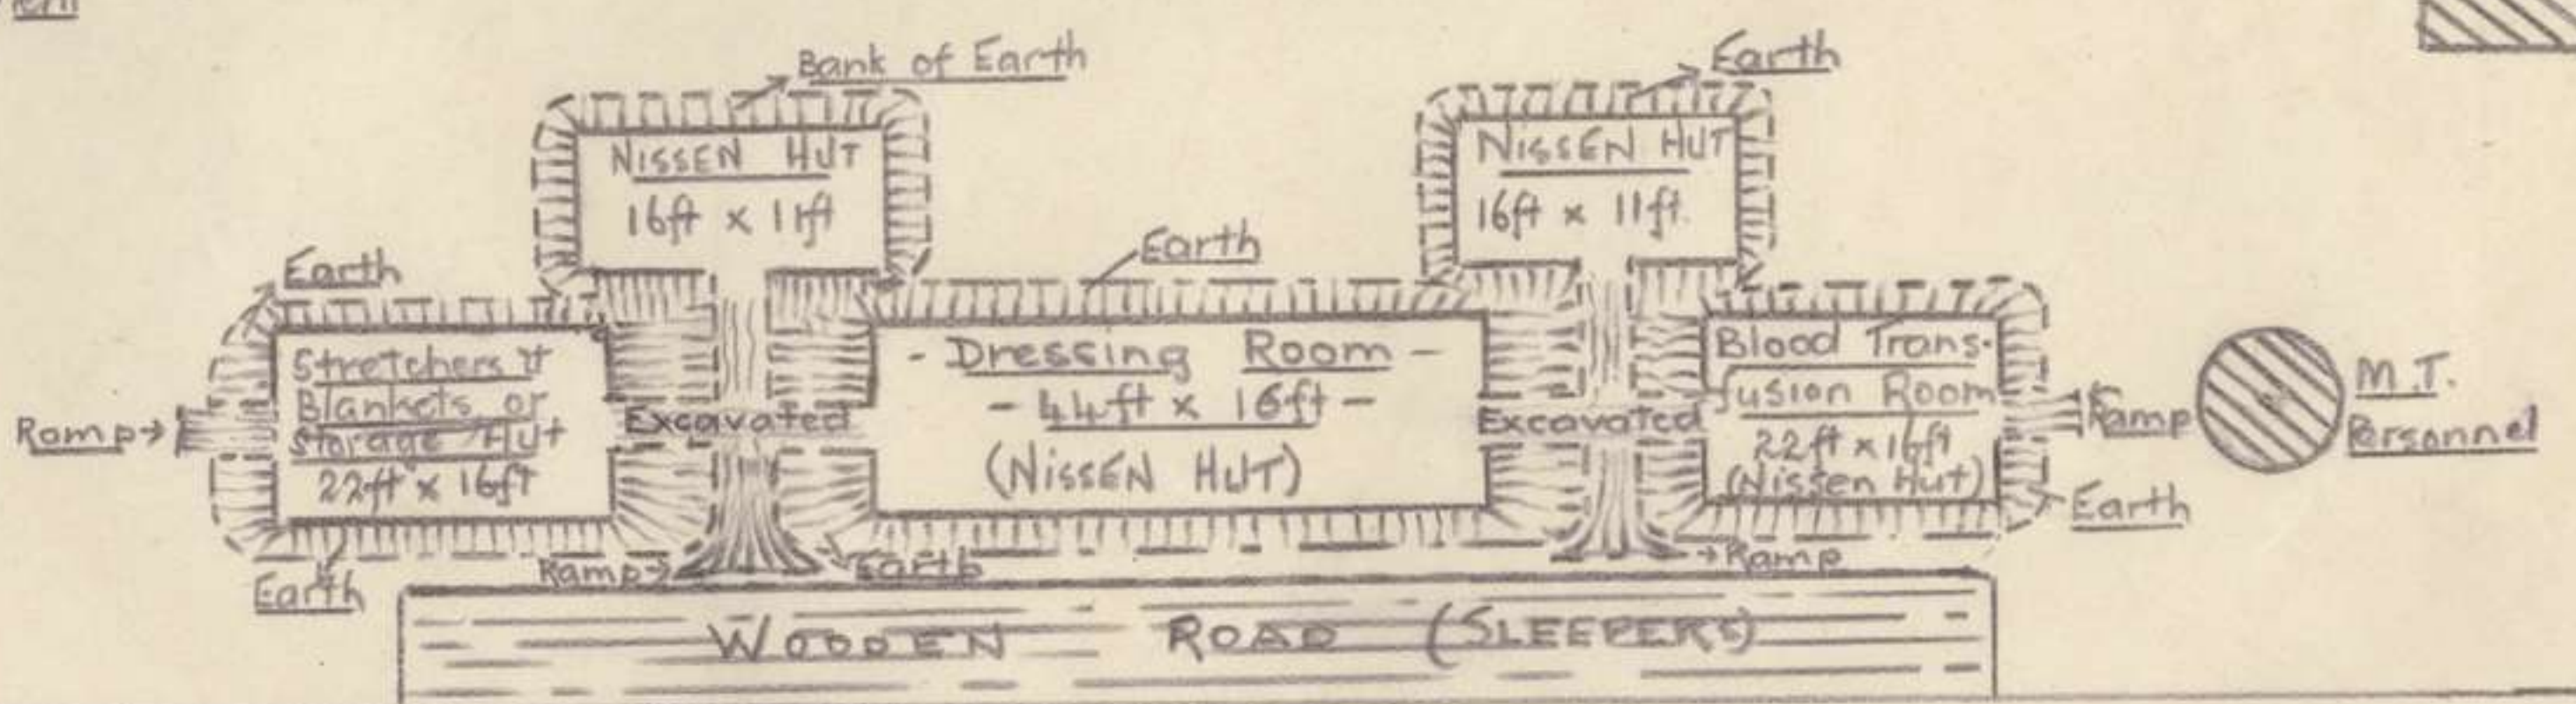 Bank of Earth
Earth
NISSEN HUT
16ft x 11ft
NISSEN HUT
16ft x 11ft.
Earth
Earth
Stretchers &
Blankets or
Storage Hut
22ft x 16ft
- Dressing Room -
- 44ft x 16ft -
(NISSEN HUT)
Blood Trans-
fusion Room
22ft x 16ft
(Nissen Hut)
Ramp
Excavated
Excavated
Ramp
M.T.
Personnel
Earth
Earth
Ramp
Earth
Ramp
WOODEN ROAD (SLEEPERS)